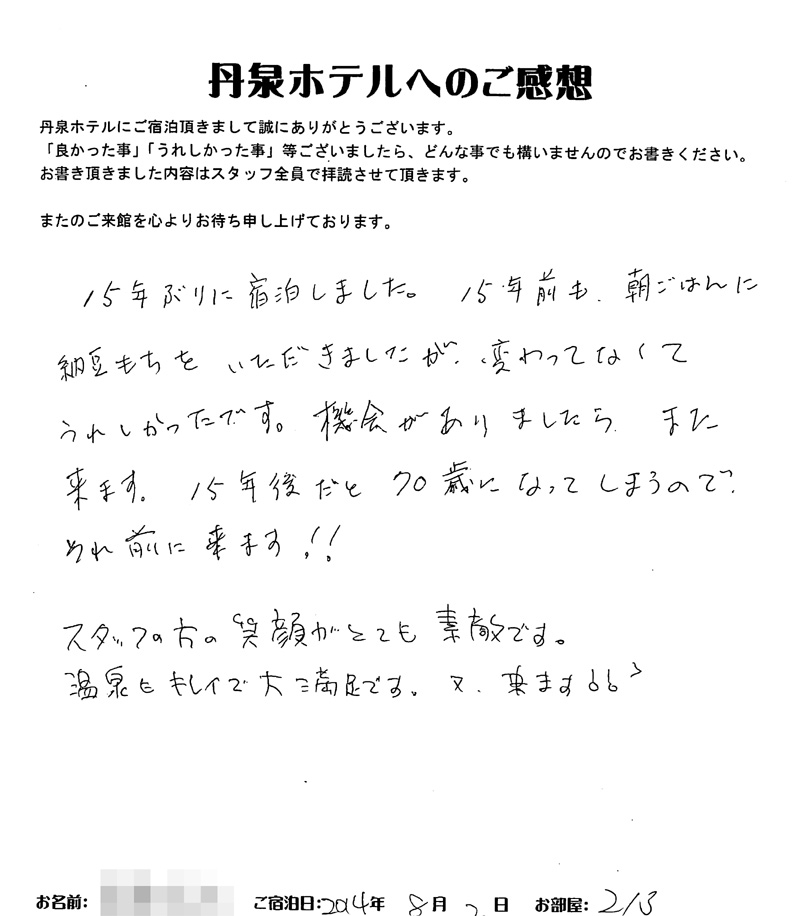 丹泉ホテルへのご感想
丹泉ホテルにご宿泊頂きまして誠にありがとうございます。
「良かった事」「うれしかった事」等ございましたら、どんな事でも構いませんのでお書きください。
お書き頂きました内容はスタッフ全員で拝読させて頂きます。
またのご来館を心よりお待ち申し上げております。
15年ぶりに宿泊しました。 15年前も、朝ごはんに
納豆もちを いただきましたが、変わってなくて
うれしかったです。機会がありましたら また
来ます。 15年後だと 70歳になってしまうので、
それ前に来ます!!
スタッフの方の笑顔がとても素敵です。
温泉もキレイで大満足です。 又、来ます
お名前: ご宿泊日:2014年 8月 2日 お部屋: 213